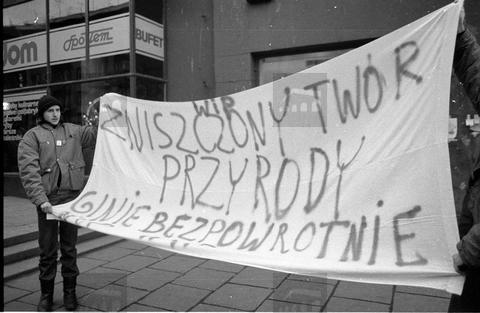 om
Społem
BUFET
WIR
ZNISZCZONY TWÓR
PRZYRODY
GINIE BEZPOWROTNIE